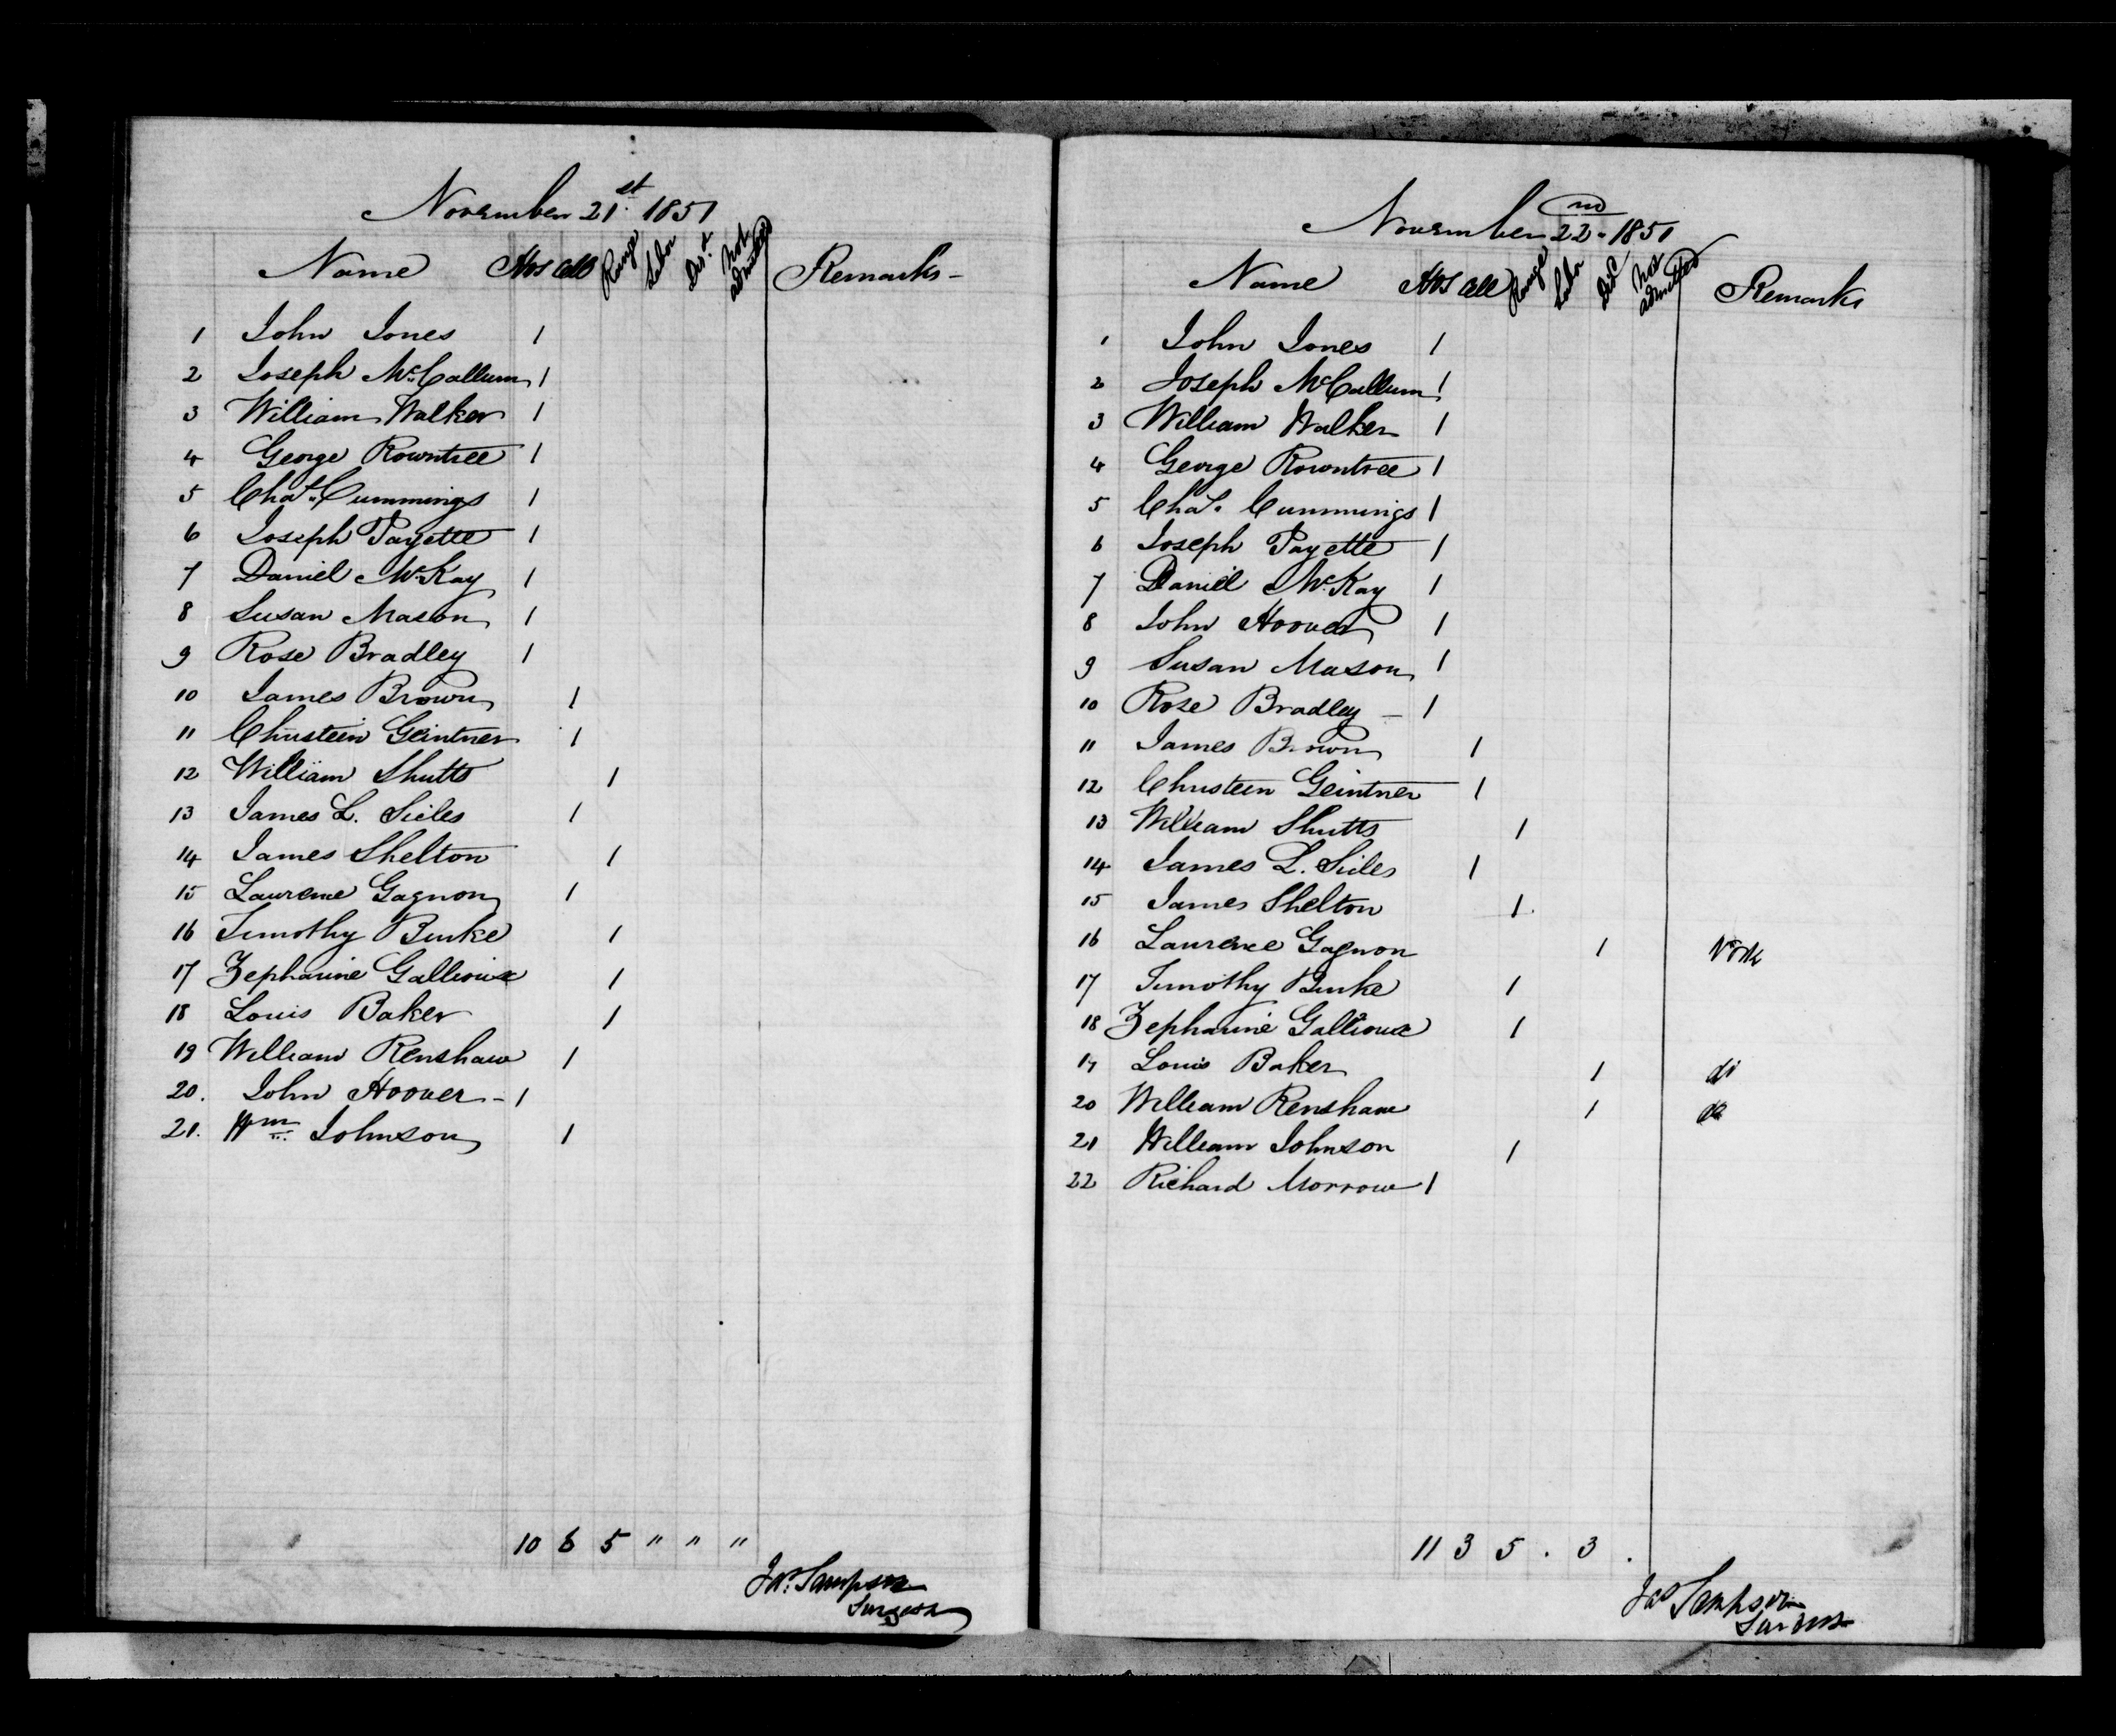 November 21st. 1851
Name Hos Cell Range Labor Dis.d Not admitted Remarks -
1 John Jones 1
2 Joseph McCallum 1
3 William Walker 1
4 George Rowntree 1
5 Chas. Cummings 1
6 Joseph Payette 1
7 Daniel McKay 1
8 Susan Mason 1
9 Rose Bradley 1
10 James Brown 1
11 Christein Geintner 1
12 William Shutts 1
13 James L. Sieles 1
14 James Shelton 1
15 Laurence Gagnon 1
16 Timothy Burke 1
17 Zepharine Gallioux 1
18 Louis Baker 1
19 William Renshaw 1
20. John Hoover - 1
21. Wm Johnson 1
10 6 5 " " "
Jas. Sampson
Surgeon
November 22nd. 1851
Name Hos Cell Range Labor Disc Not admitted Remarks
1 John Jones 1
2 Joseph McCallum 1
3 William Walker 1
4 George Rowntree 1
5 Chas. Cummings 1
6 Joseph Payette 1
7 Daniel McKay 1
8 John Hoover 1
9 Susan Mason 1
10 Rose Bradley - 1
11 James Brown 1
12 Christein Geintner 1
13 William Shutts 1
14 James L. Sieles 1
15 James Shelton 1.
16 Laurence Gagnon 1 Work
17 Timothy Burke 1
18 Zepharine Gallioux 1
19 Louis Baker 1 do
20 William Renshaw 1 do
21 William Johnson 1
22 Richard Morrow 1
11 3 5 . 3 .
Jas Sampson
Surgeon